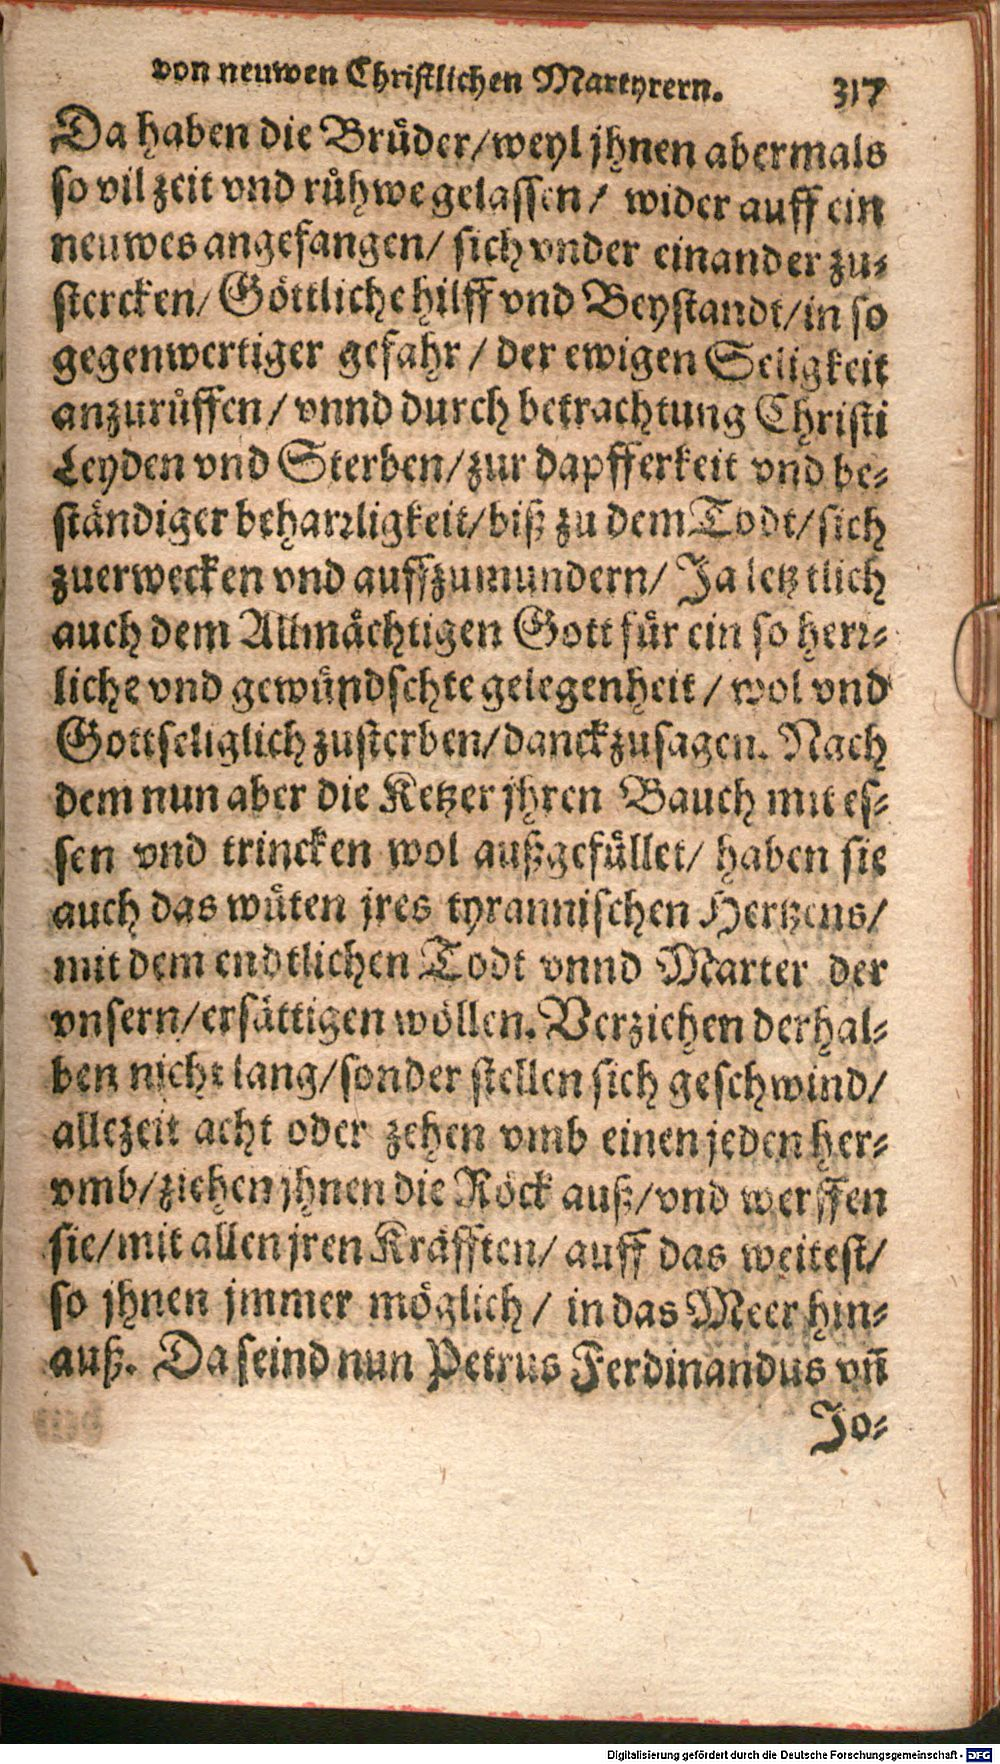 von neuwen Christlichen Martyrern. 317
Da haben die Bruͤder/weyl jhnen abermals
so vil zeit vnd ruͦhwe gelassen/ wider auff ein
neuwes angefangen/ sich vnder einander zu-
stercken/ Goͤttliche hilff vnd Beystandt/in so
gegenwertiger gefahr / der ewigen Seligkeit
anzuruͤffen/ vnnd durch betrachtung Christi
Leyden vnd Sterben/zur dapfferkeit vnd be-
staͤndiger beharꝛligkeit/biß zu dem Todt/sich
zuerwecken vnd auffzumundern/ Ja letztlich
auch dem Allmaͤchtigen Gott fuͤr ein so herꝛ-
liche vnd gewuͤndschte gelegenheit / wol vnd
Gottseliglich zusterben/danckzusagen. Nach
dem nun aber die Ketzer jhren Bauch mit es-
sen vnd trincken wol außgefuͤllet/ haben sie
auch das wuͤten jres tyrannischen Hertzens/
mit dem endtlichen Todt vnnd Marter der
vnsern/ersaͤttigen woͤllen. Verziehen derhal-
ben nicht lang/sonder stellen sich geschwind/
allezeit acht oder zehen vmb einen jeden her-
vmb/ziehen jhnen die Roͤck auß/vnd werffen
sie/mit allen jren Kraͤfften/ auff das weitest/
so jhnen jmmer moͤglich / in das Meer hin-
auß. Da seind nun Petrus Ferdinandus vñ
Jo-
Digitalisierung gefördert durch die Deutsche Forschungsgemeinschaft - DFG